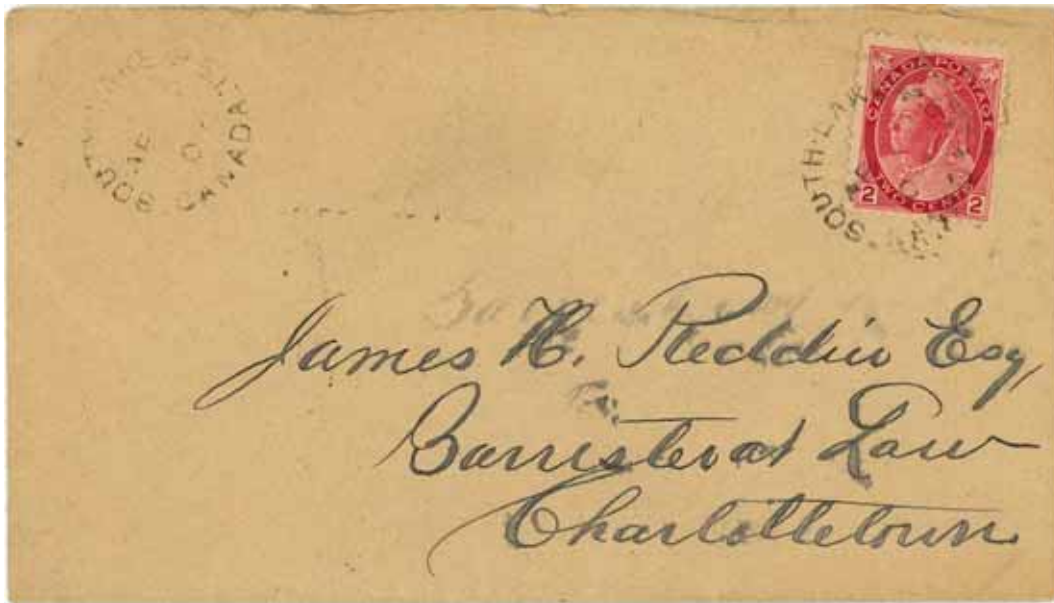 CANADA
CANADA POSTAGE
2 TWO CENTS 2
James H. Reddin Esq,
Barrister at Law
Charlottetown